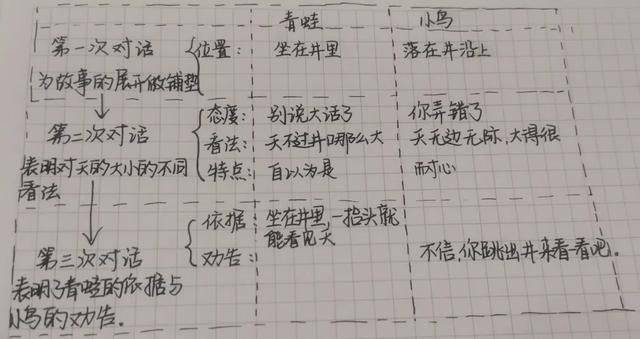 青蛙 小鸟
第一次对话 位置： 坐在井里 落在井沿上
为故事的展开做铺垫
态度： 别说大话了 你弄错了
第二次对话 看法： 天不过井口那么大 天无边无际，大得很
表明对天的大小的不同 特点： 自以为是 耐心
看法
依据： 坐在井里，一抬头就
能看见天
第三次对话 劝告： 不信，你跳出井来看看吧。
表明了青蛙的依据与
小鸟的劝告。